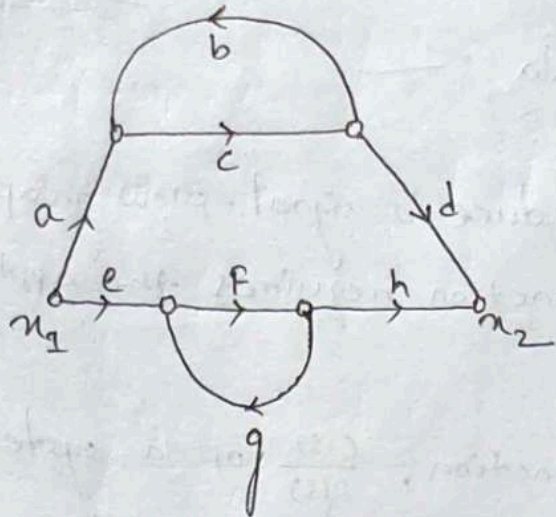 b
c
a
d
e f h
x₁ x₂
g